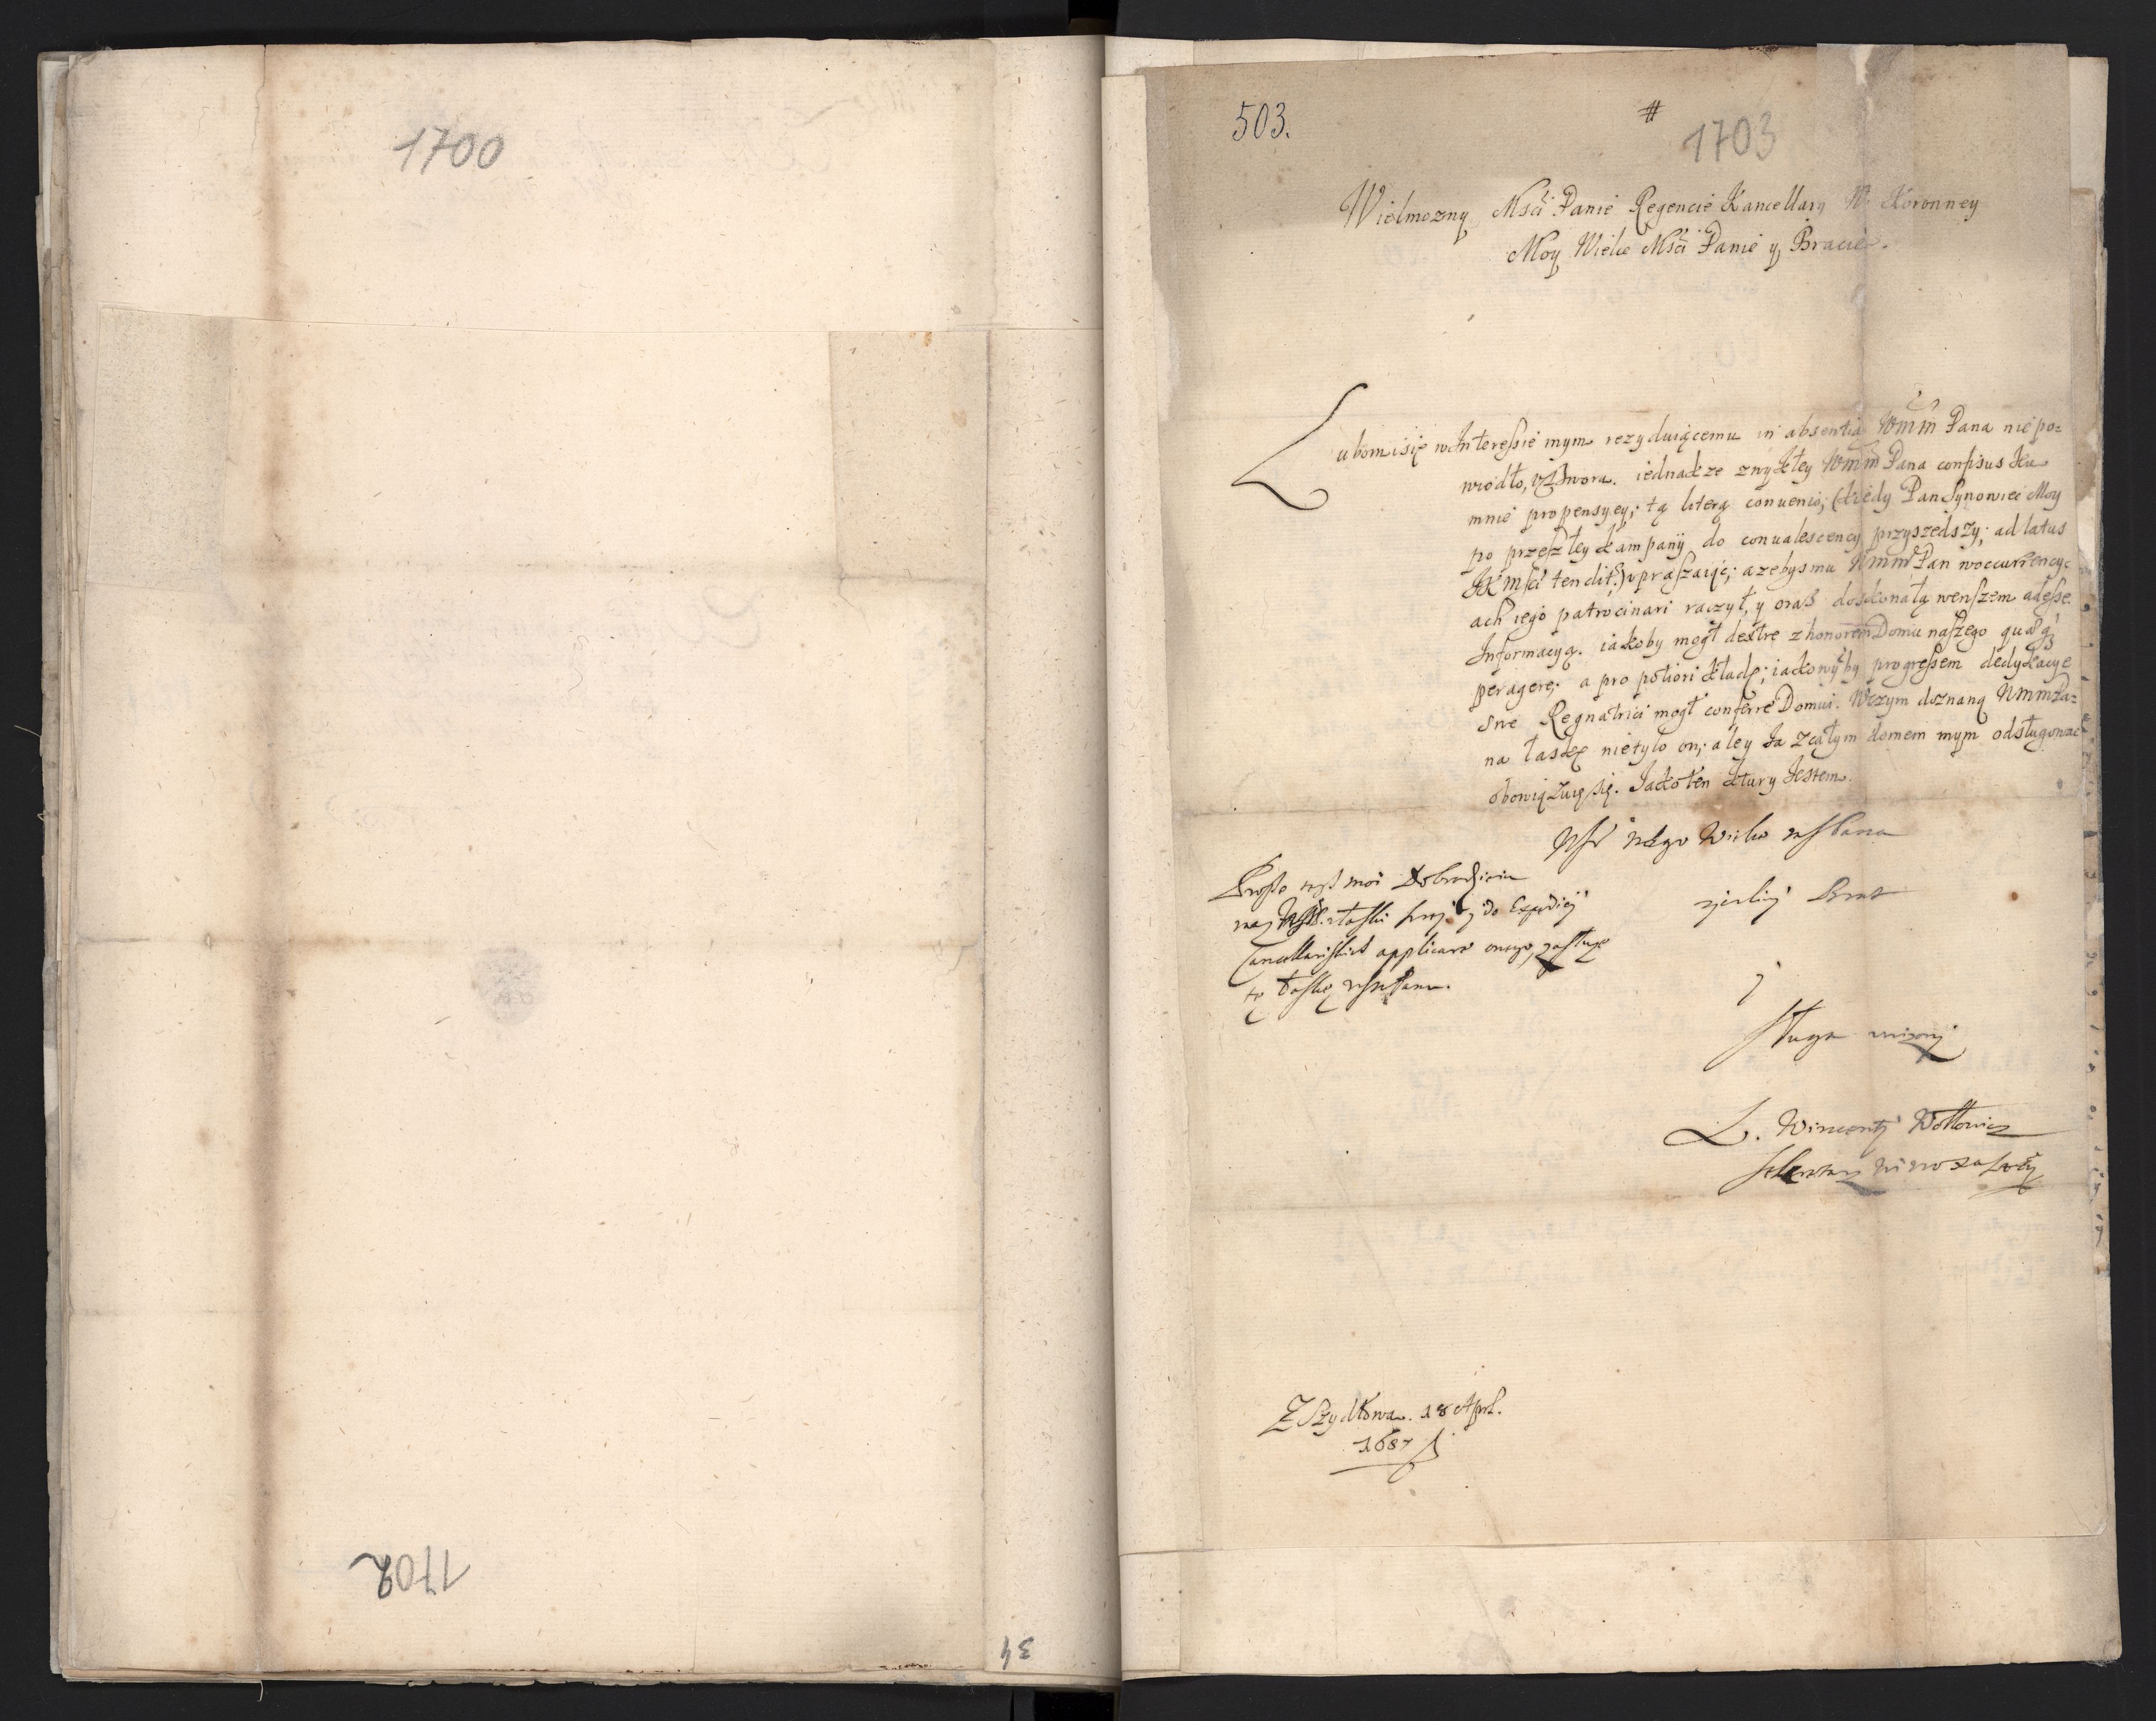 1700
1702
34
503.
#
1703
Wielmozny Msći Panie Regencie Kancellary W. Koronney
Moy Wielce Msći Panie y Bracie.
Lubom isię w Interessie mym rezyduiącemu in absentia Wmm Pana nie po=
wiodło, v Dwora. iednakze zwykłey Wmm Pana confisus ku
mnie propensyey; tą literą convenio; (kiedy Pan Synowiec Moy
po przeszłey kampanÿ do conualescency przyszedszy; ad latus
JKMsći tendit) vpraszaiąc; azebys mu Wmm Pan woccurrency=
ach iego patrocinari raczył, y oraz doskonałą wewszem adesse
Informacyą. iakoby mogł destre z honorem Domu naszego
peragere; a pro potiori kładę; iakowyby progressem dedykacye
swe Regnatrici mogł conferre Domui. Wczym doznaną WmmPa=
na łaskę nie tylo on; ale y Ja zcałym domem mym odsługowac
obowiązuię się. Jako ten ktury Jestem.
Wielce Pana
Prosze moi Dobrodzieiu
zyczliwy Brat
łaski do Expedicÿ
Cancellariskich applicare onego, zasłuze
tę łaskę
y
sługa unizony
L. Wincenty Wołłowicz
Z Szydłowa. 18 Apr.
1687